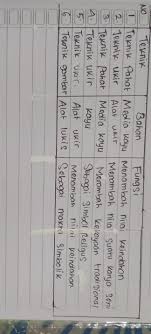 NO Teknik Bahan Fungsi
1 Teknik Pahat Media kayu Menambah nilai keindahan
2 Teknik ukir Alat ukir Menambah nilai karya seni
3 Teknik Pahat Media kayu Menambah
4 Teknik ukir kayu Sebagai simbol religius
5 Teknik ukir Alat ukir Menambah nilai keindahan
6 Teknik gambar Alat lukis Sebagai makna simbolik